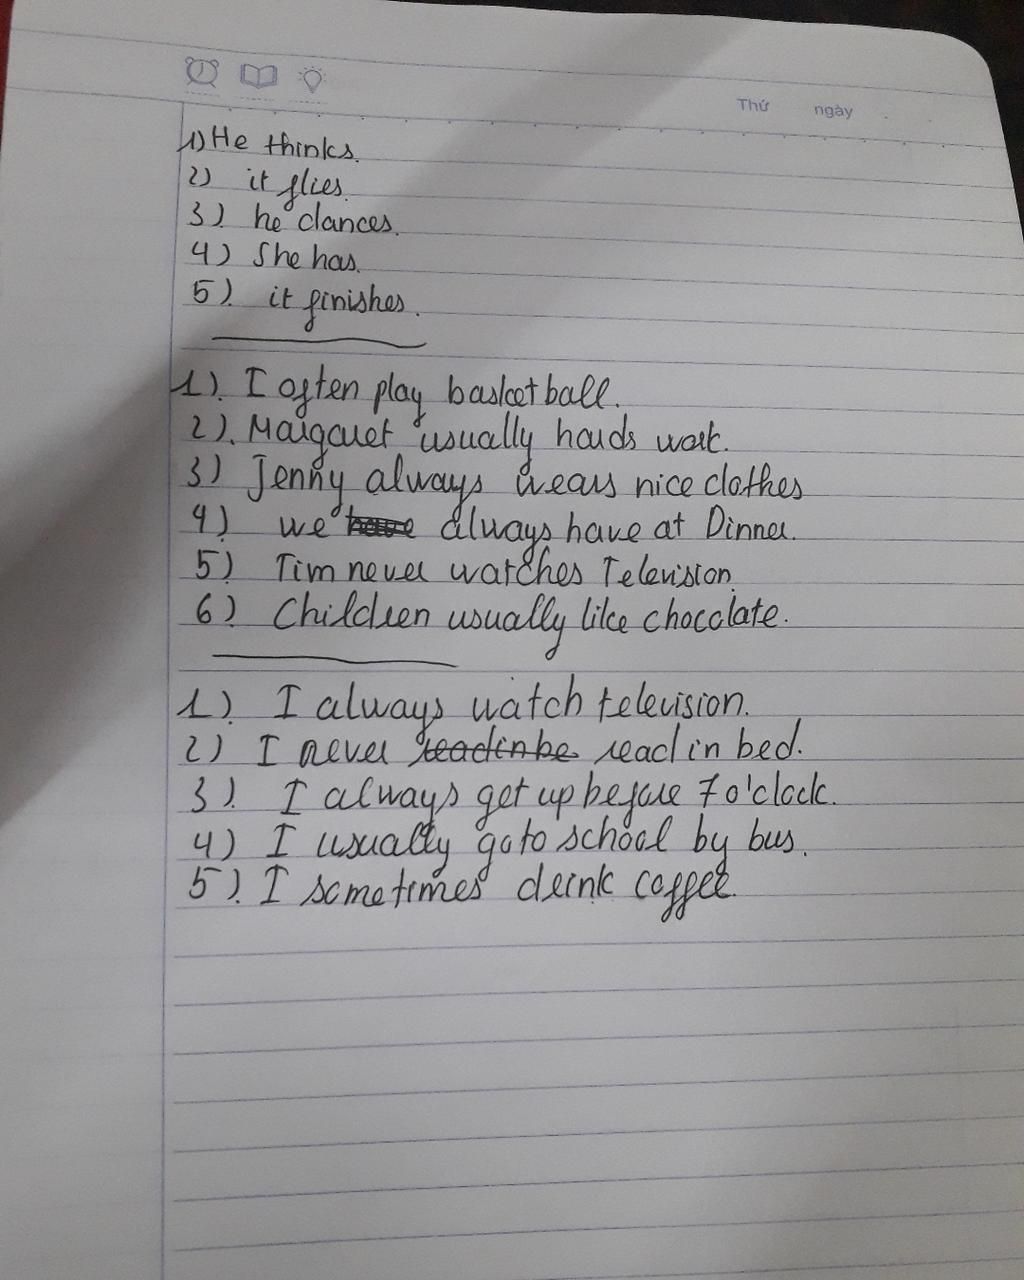 Thứ ngày
1) He thinks.
2) it flies.
3) he dances.
4) She has.
5) it finishes.
1). I often play basketball.
2). Margaret usually hards work.
3) Jenny always wears nice clothes
4) we have always have at Dinner.
5) Tim never watches Television.
6) Children usually like chocolate.
1). I always watch television.
2) I never readinbe read in bed.
3). I always get up before 7 o'clock.
4) I usually go to school by bus.
5). I sometimes drink coffee.